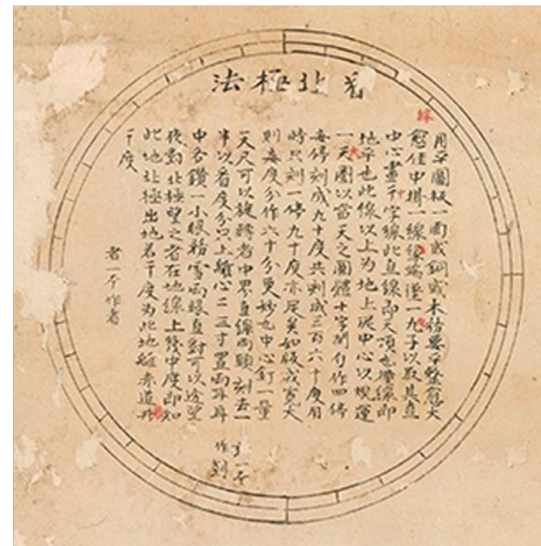 法極北㝵
用平圖板一面或銅或木皆要平整愈大
愈佳中掛一線線端墜一丸子以取其直
中心畫十字線此直線即天頂也橫線即
地平也此線以上為地上從中心以規運
一大圈以當天之圓體十字間勻作四停
每停刻成九十度共刻成三百六十度用
時只刻一停九十度亦足矣如版成寬大
則每度分作六十分更妙也中心釘一量
天尺可以旋轉者中界直線兩頭刻去一
半以看度分尺上離心二三寸置兩耳耳
中各鑽一小眼務害兩眼直對可以透望
夜對北極望之看在地線上幾十度即知
此地北極出地若干度為此地離赤道北
干度
者一本作看
才一本
作到